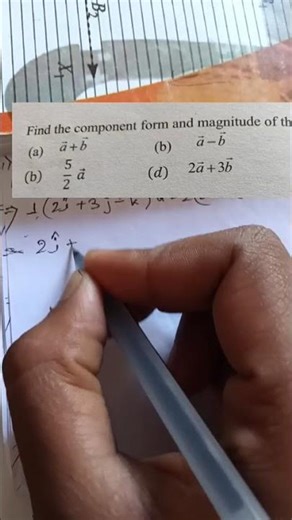 B₂
X₁
Find the component form and magnitude of th
(a) a⃗+b⃗ (b) a⃗−b⃗
(b) 5/2 a⃗ (d) 2a⃗+3b⃗
= 2ĵ +